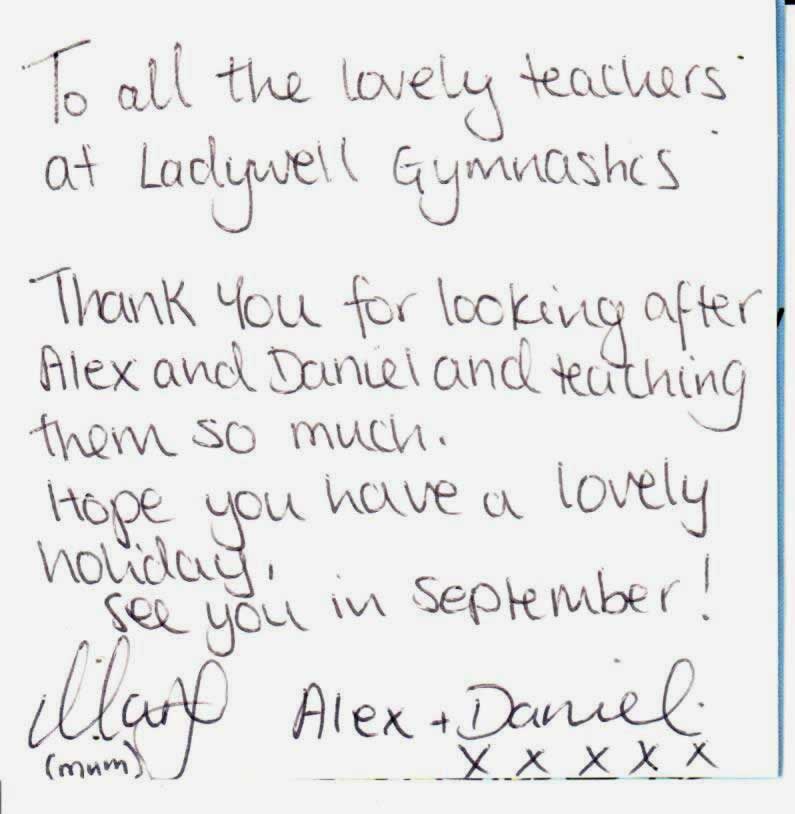 To all the lovely teachers
at Ladywell Gymnastics
Thank you for looking after
Alex and Daniel and teaching
them so much.
Hope you have a lovely
holiday,
see you in September!
Alex + Daniel
(mum) x x x x x